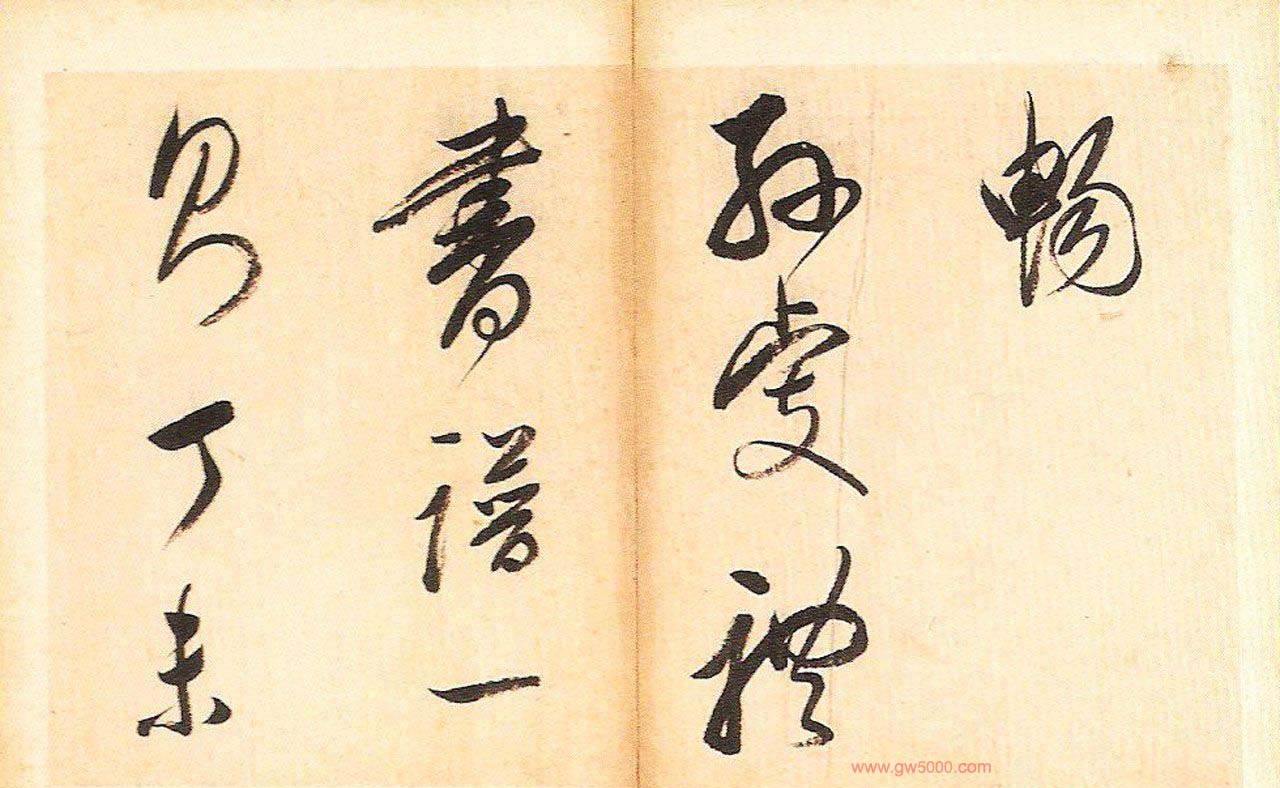 暢
孫虔禮
書譜一
則丁未
www.gw5000.com